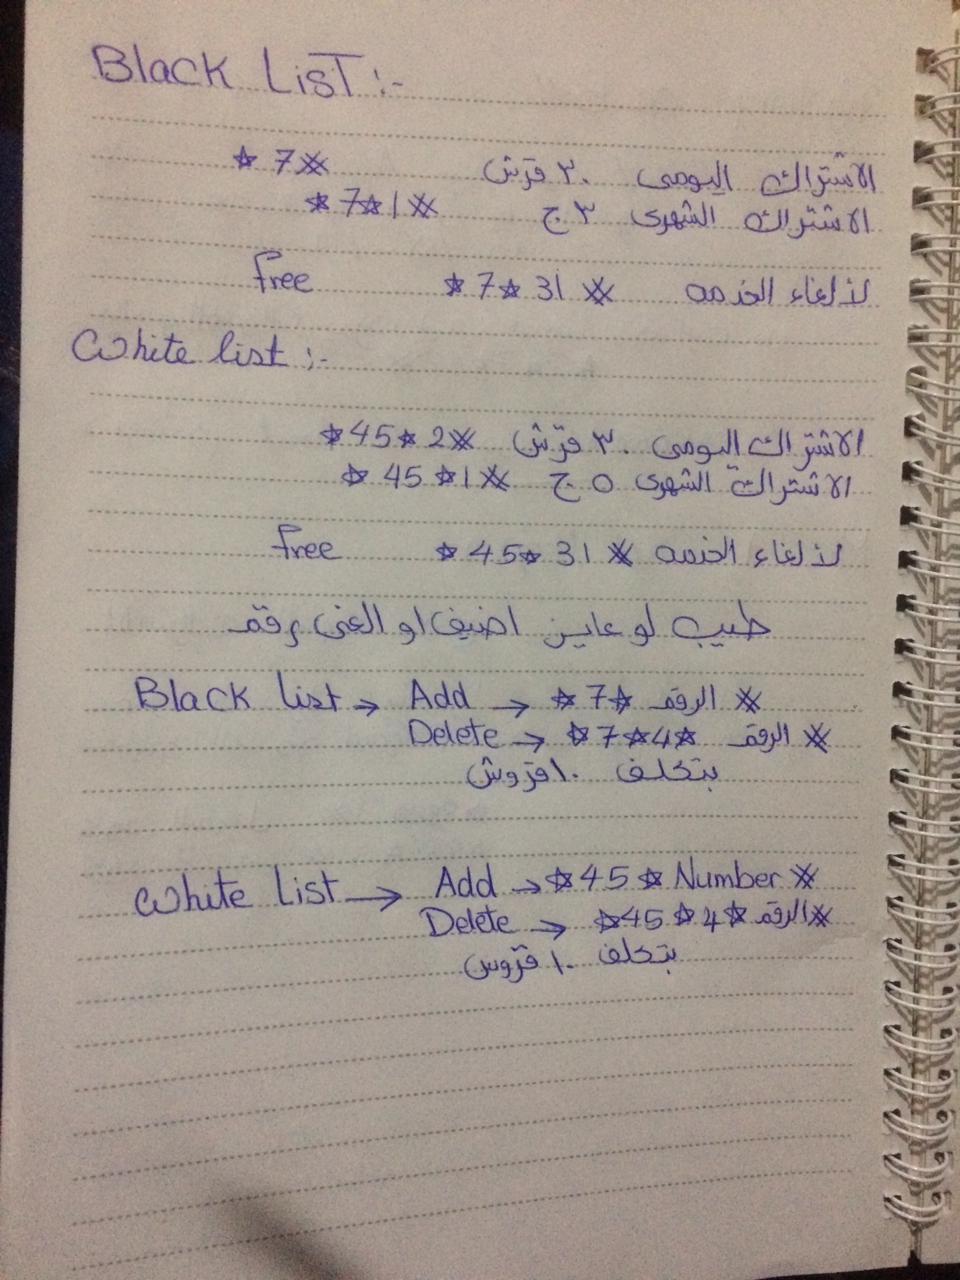 Black List :-
الاشتراك اليومى ٣٠ قرش *7#
الاشتراك الشهرى ٣ ج *7*1#
لألغاء الخدمه *7*31# free
White list :-
الاشتراك اليومى ٣٠ قرش *45*2#
الاشتراك الشهرى ٥ ج *45*1#
لألغاء الخدمه *45*31# free
طيب لو عايز اضيف او الغى رقم
Black list → Add → *7*الرقم#
Delete → *7*4*الرقم#
بتكلف ١٠ قروش
White List → Add → *45*Number#
Delete → *45*4*الرقم#
بتكلف ١٠ قروش